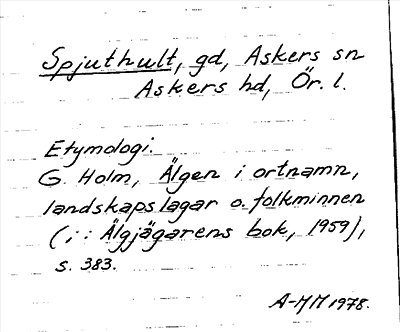 Spjuthult, gd, Askers sn
Askers hd, Ör. l.
Etymologi.
G. Holm, Älgen i ortnamn,
landskapslagar o. folkminnen
(i: Älgjägarens bok, 1959),
s. 383.
A-MM 1978.